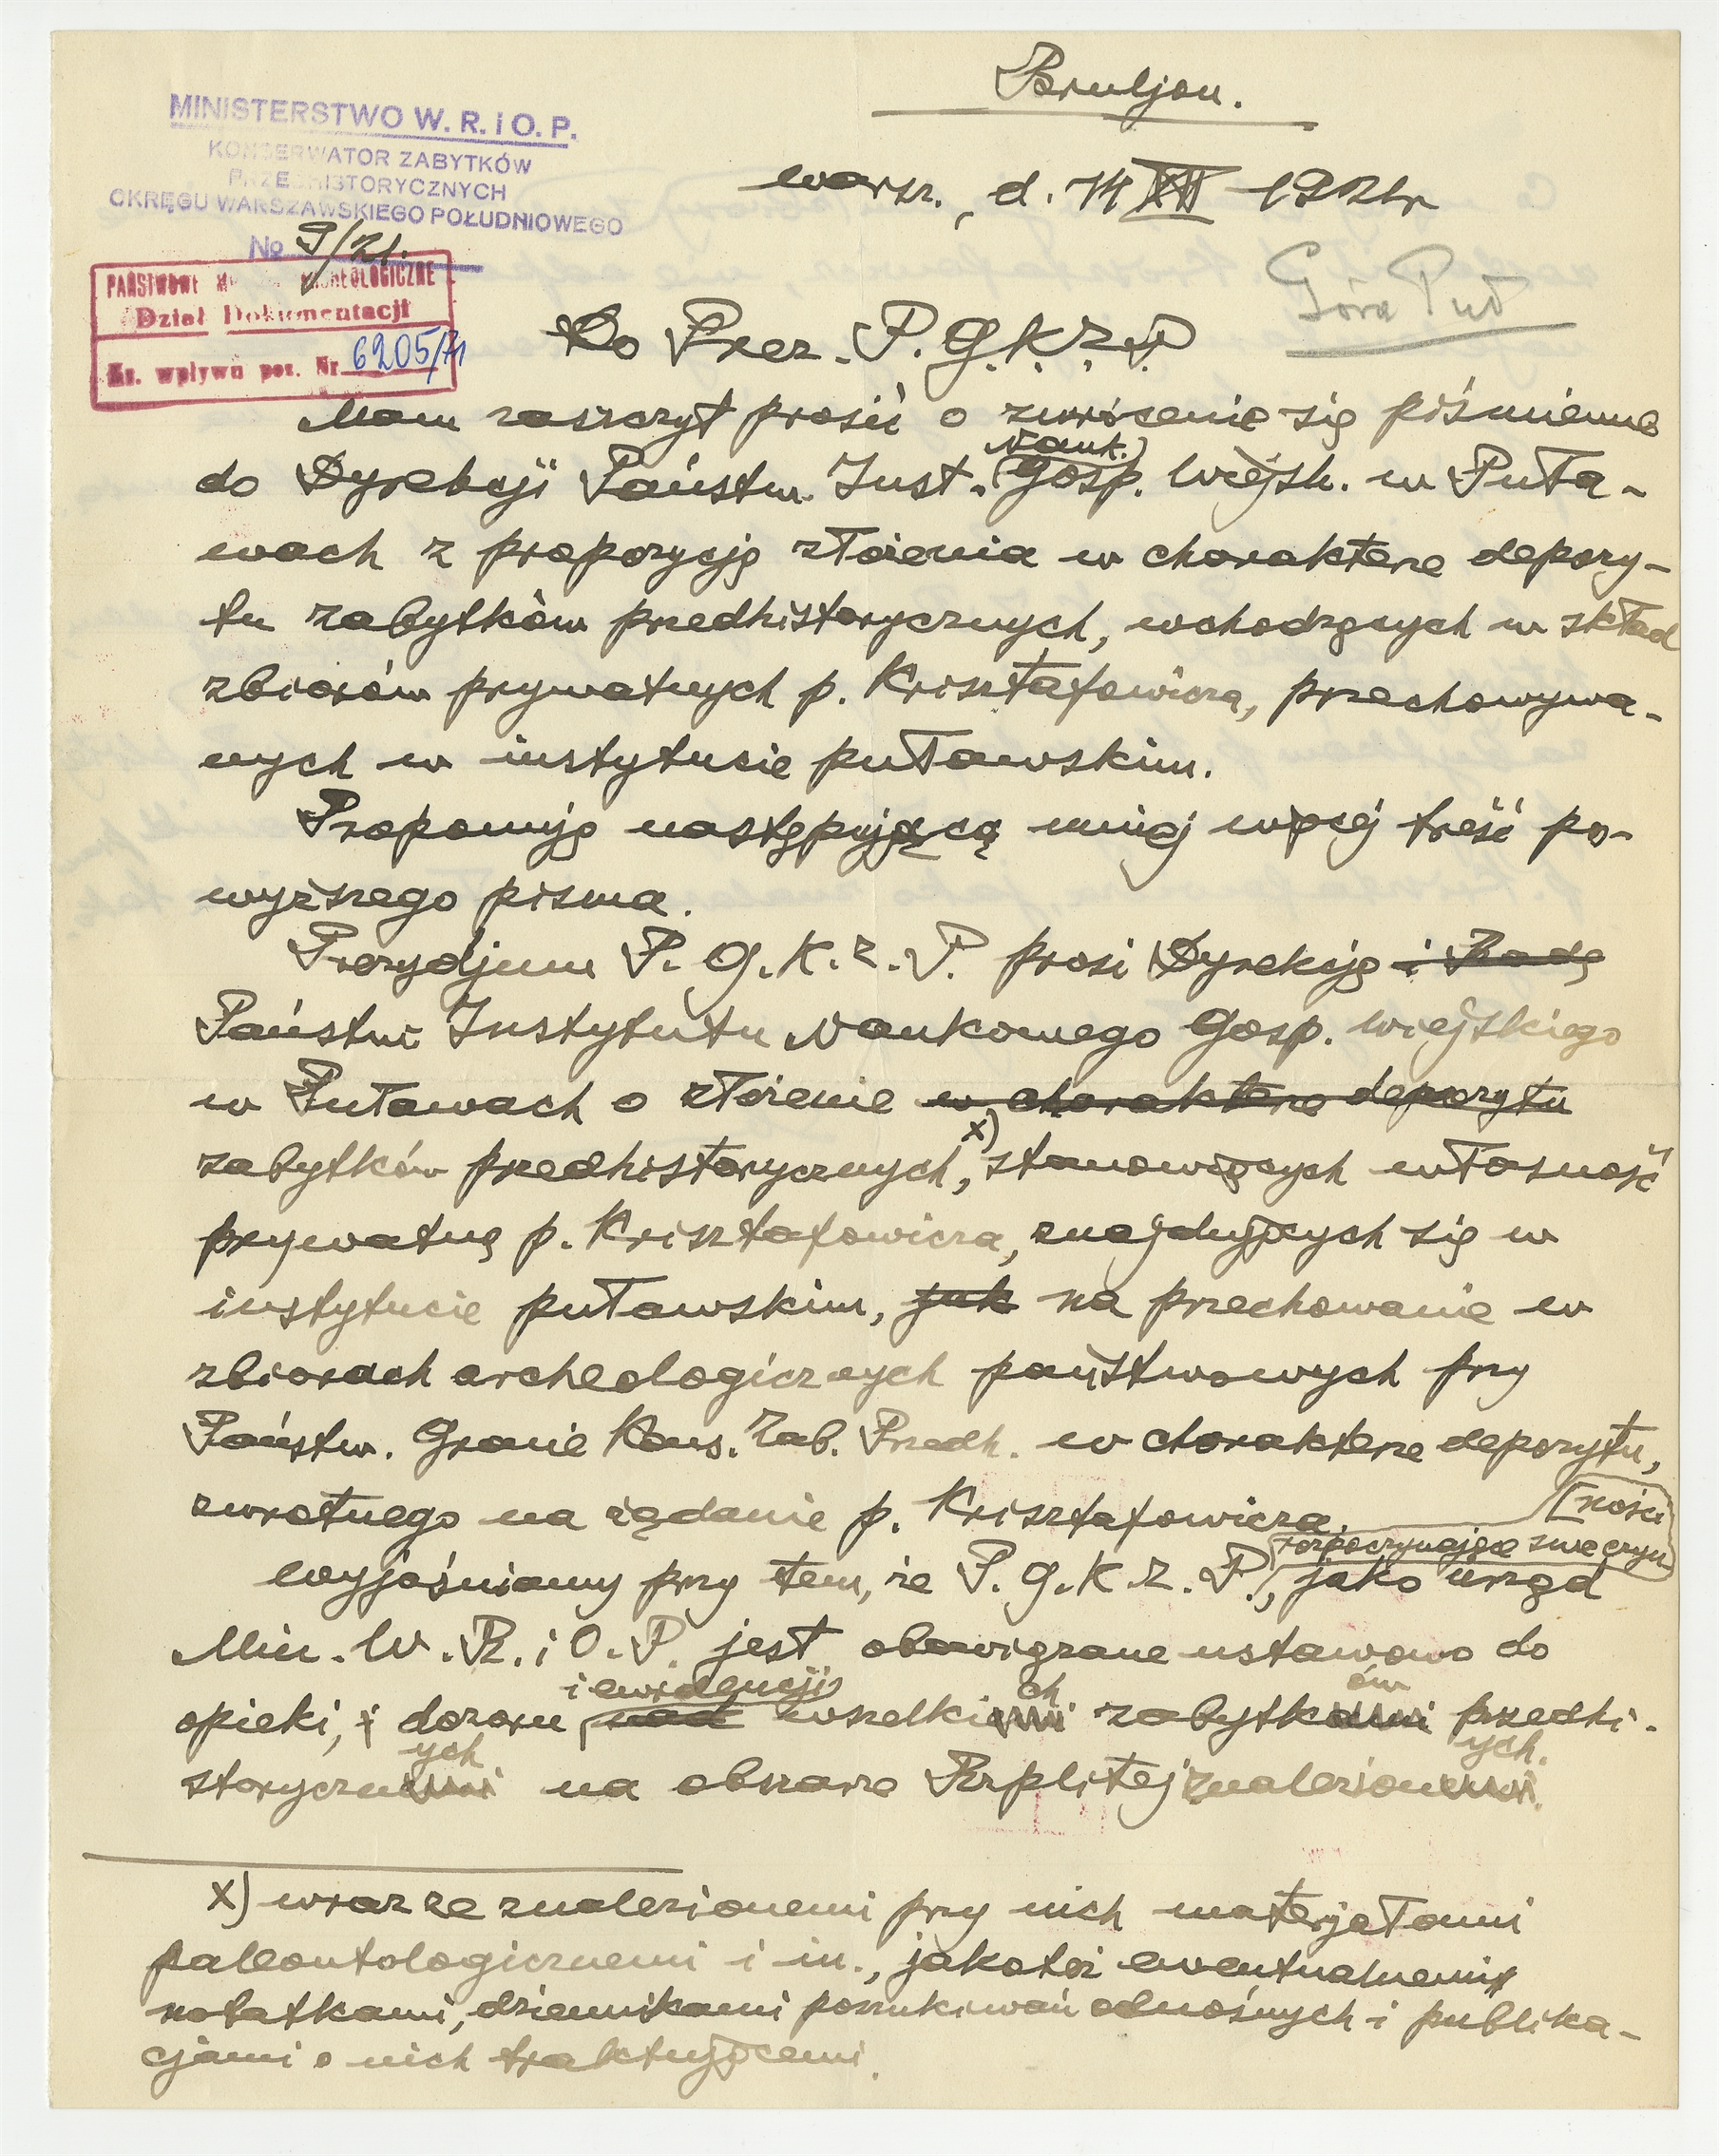 Bruljon.
MINISTERSTWO W. R. i O. P.
KONSERWATOR ZABYTKÓW
PRZEDHISTORYCZNYCH
OKRĘGU WARSZAWSKIEGO POŁUDNIOWEGO
№ 9/21.
Warsz., d. 14 XII 1921 r
Góra Puł
PAŃSTWOWE MUZEUM ARCHEOLOGICZNE
Dział Dokumentacji
Ks. wpływu poz. Nr 6205/71
Do Prez. P. G. K. Z. P
Mam zaszczyt prosić o zwrócenie się piśmienne
do Dyrekcji Państw. Inst. Nauk. Gosp. Wiejsk. w Puła-
wach z propozycją złożenia w charakterze depozy-
tu zabytków przedhistorycznych, wchodzących w skład
zbiorów prywatnych p. Krisztafowicza, przechowywa-
nych w instytucie puławskim.
Proponuję następującą mniej więcej treść po-
wyższego pisma.
Prezydjum P. G. K. Z. P. prosi Dyrekcję i Radę
Państw Instytutu Naukowego Gosp. Wiejskiego
w Puławach o złożenie w charakterze depozytu
zabytków przedhistorycznych, x) stanowiących własność
prywatną p. Krisztafowicza, znajdujących się w
instytucie puławskim, jak na przechowanie w
zbiorach archeologicznych państwowych przy
Państw. Gronie Kons. Zab. Przedh. w charakterze depozytu,
zwrotnego na żądanie p. Krisztafowicza.
[ności
rozpoczynające swe czyn
Wyjaśniamy przy tem, że P. G. K. Z. P., jako urząd
Min. W. R. i O. P. jest obowiązane ustawowo do
i ewidencji ch ów
opieki, i dozoru nad wszelkiemi zabytkami przedhi-
ych ych.
storycznemi na obszarze Rzplitej znalezionemi.
x) wraz ze znalezionemi przy nich materjałami
paleontologicznemi i in., jakoteż ewentualnemi
notatkami, dziennikami poszukiwań odnośnych i publika-
cjami o nich traktującemi.